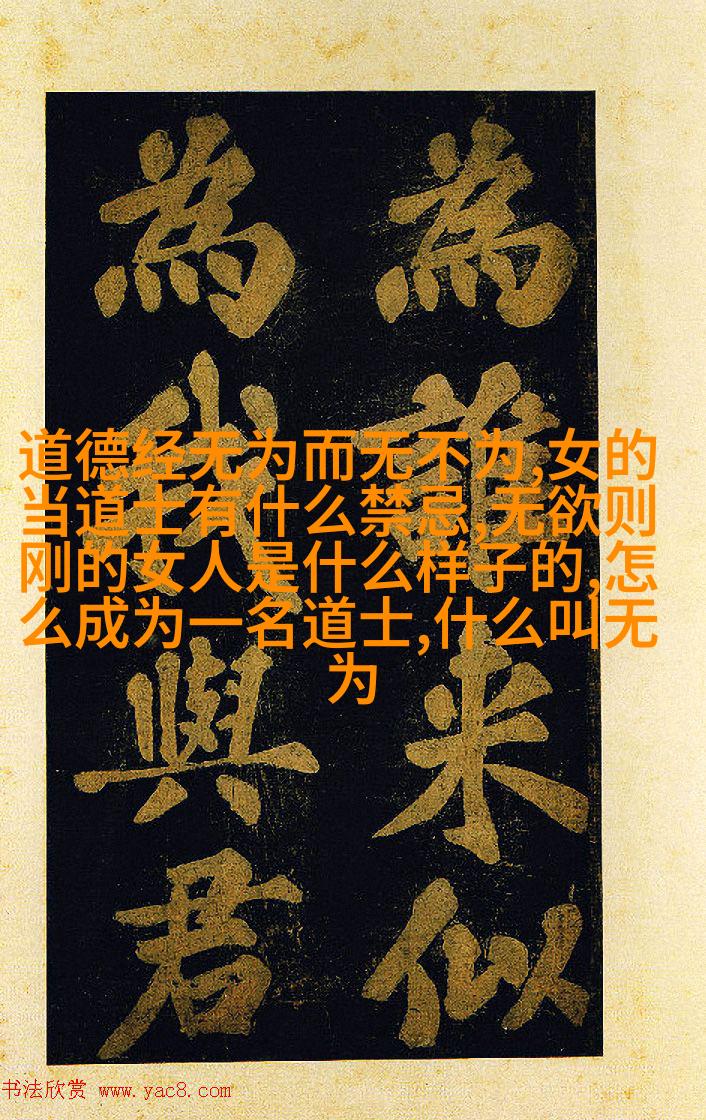 道德经无为而无不为,女的
当道士有什么禁忌,无欲则
刚的女人是什么样子的,怎
么成为一名道士,什么叫无
为
為誰来似
為我與君
书法欣赏 www.yac8.com